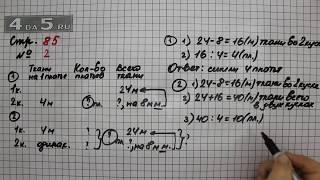 4DA5.RU
Стр. 85
№ 2
Ткани на 1 платье
Кол-во платьев
Всего ткани
①
1к. 24м
2к. 4м ?пл. ?, на 8м м.
②
1к. 4м ? 24м
2к. одинак. ? ?, на 8м м. ?
① 1) 24-8=16(м) ткани во 2 куске
2) 16:4=4(пл.)
Ответ: сшили 4 платья
② 1) 24-8=16(м) ткани во 2 куске
2) 24+16=40(м) ткани всего
в двух кусках
3) 40:4=10(пл.)